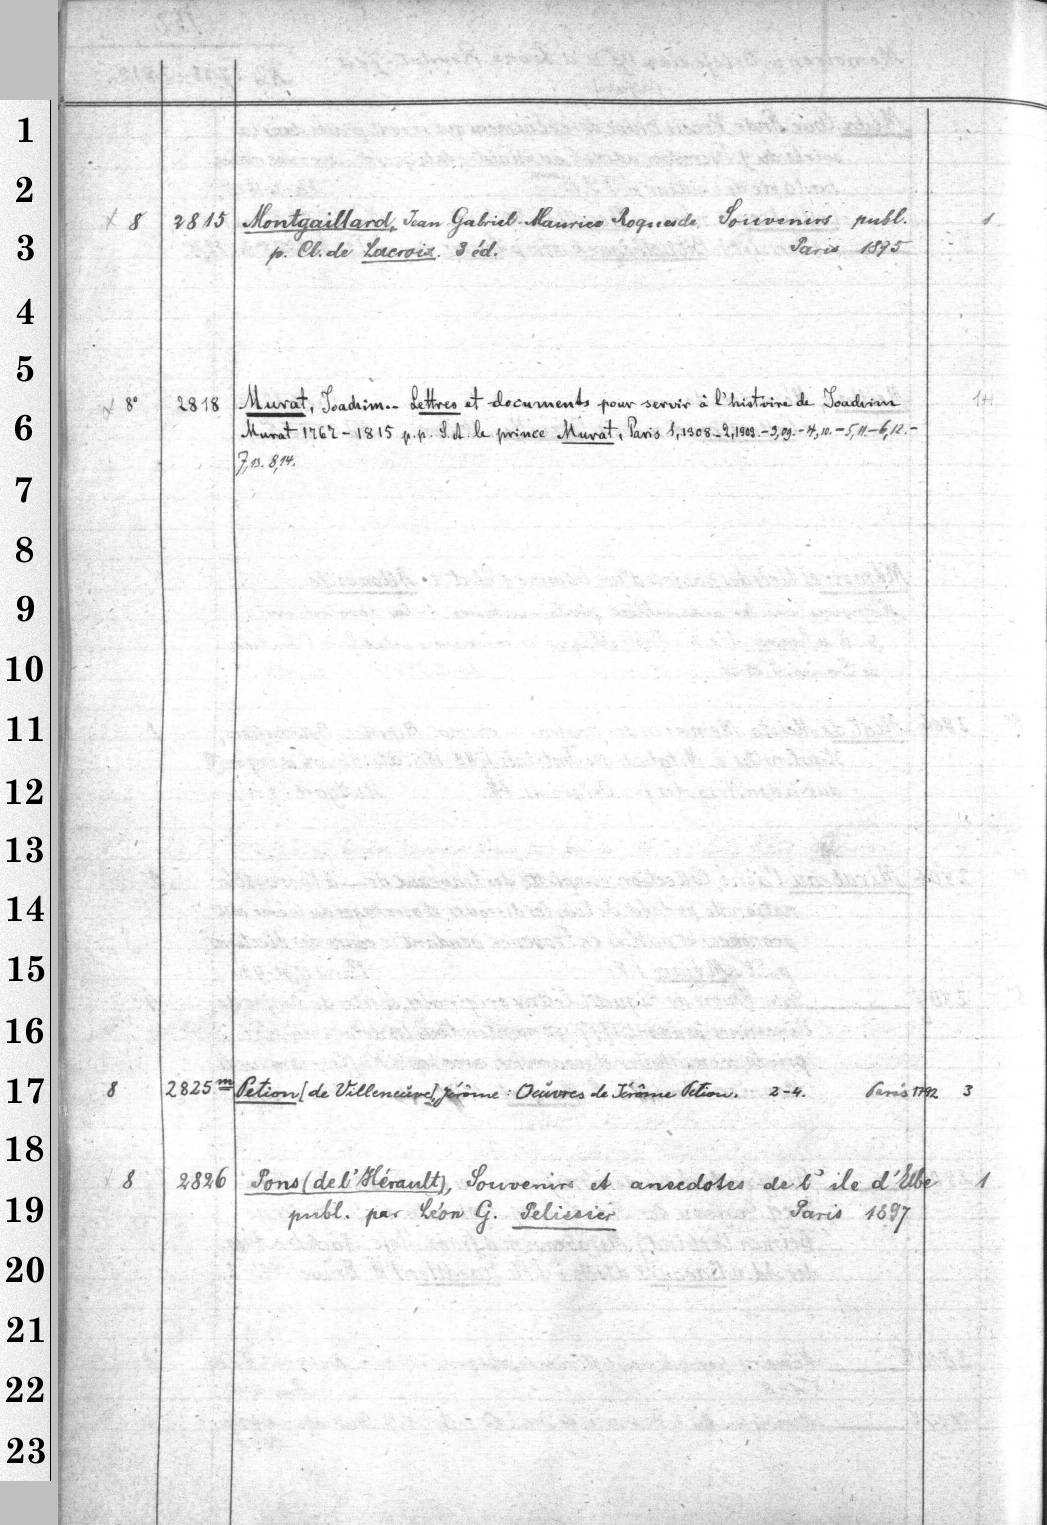 1
2
x 8 2815 Montgaillard, Jean Gabriel Maurice Roques de, Souvenirs publ. 1
3
p. Cl. de Lacroix. 3 éd. Paris 1895
4
5
x 8° 2818 Murat, Joachim.. Lettres et documents pour servir à l'histoire de Joachim 1+1
6
Murat 1767-1815 p.p. S.A. le prince Murat, Paris 1,1908-2,1909.-3,09.-4,10.-5,11.-6,12.-
7,13. 8,14.
7
8
9
10
11
12
13
14
15
16
17
8 2825m Petion [de Villeneuve], Jérôme: Oeuvres de Jérôme Petion. 2-4. Paris 1792 3
18
8 2826 Pons (de l'Hérault), Souvenirs et anecdotes de l' ile d'Elbe 1
19
publ. par Léon G. Pelissier Paris 1897
20
21
22
23